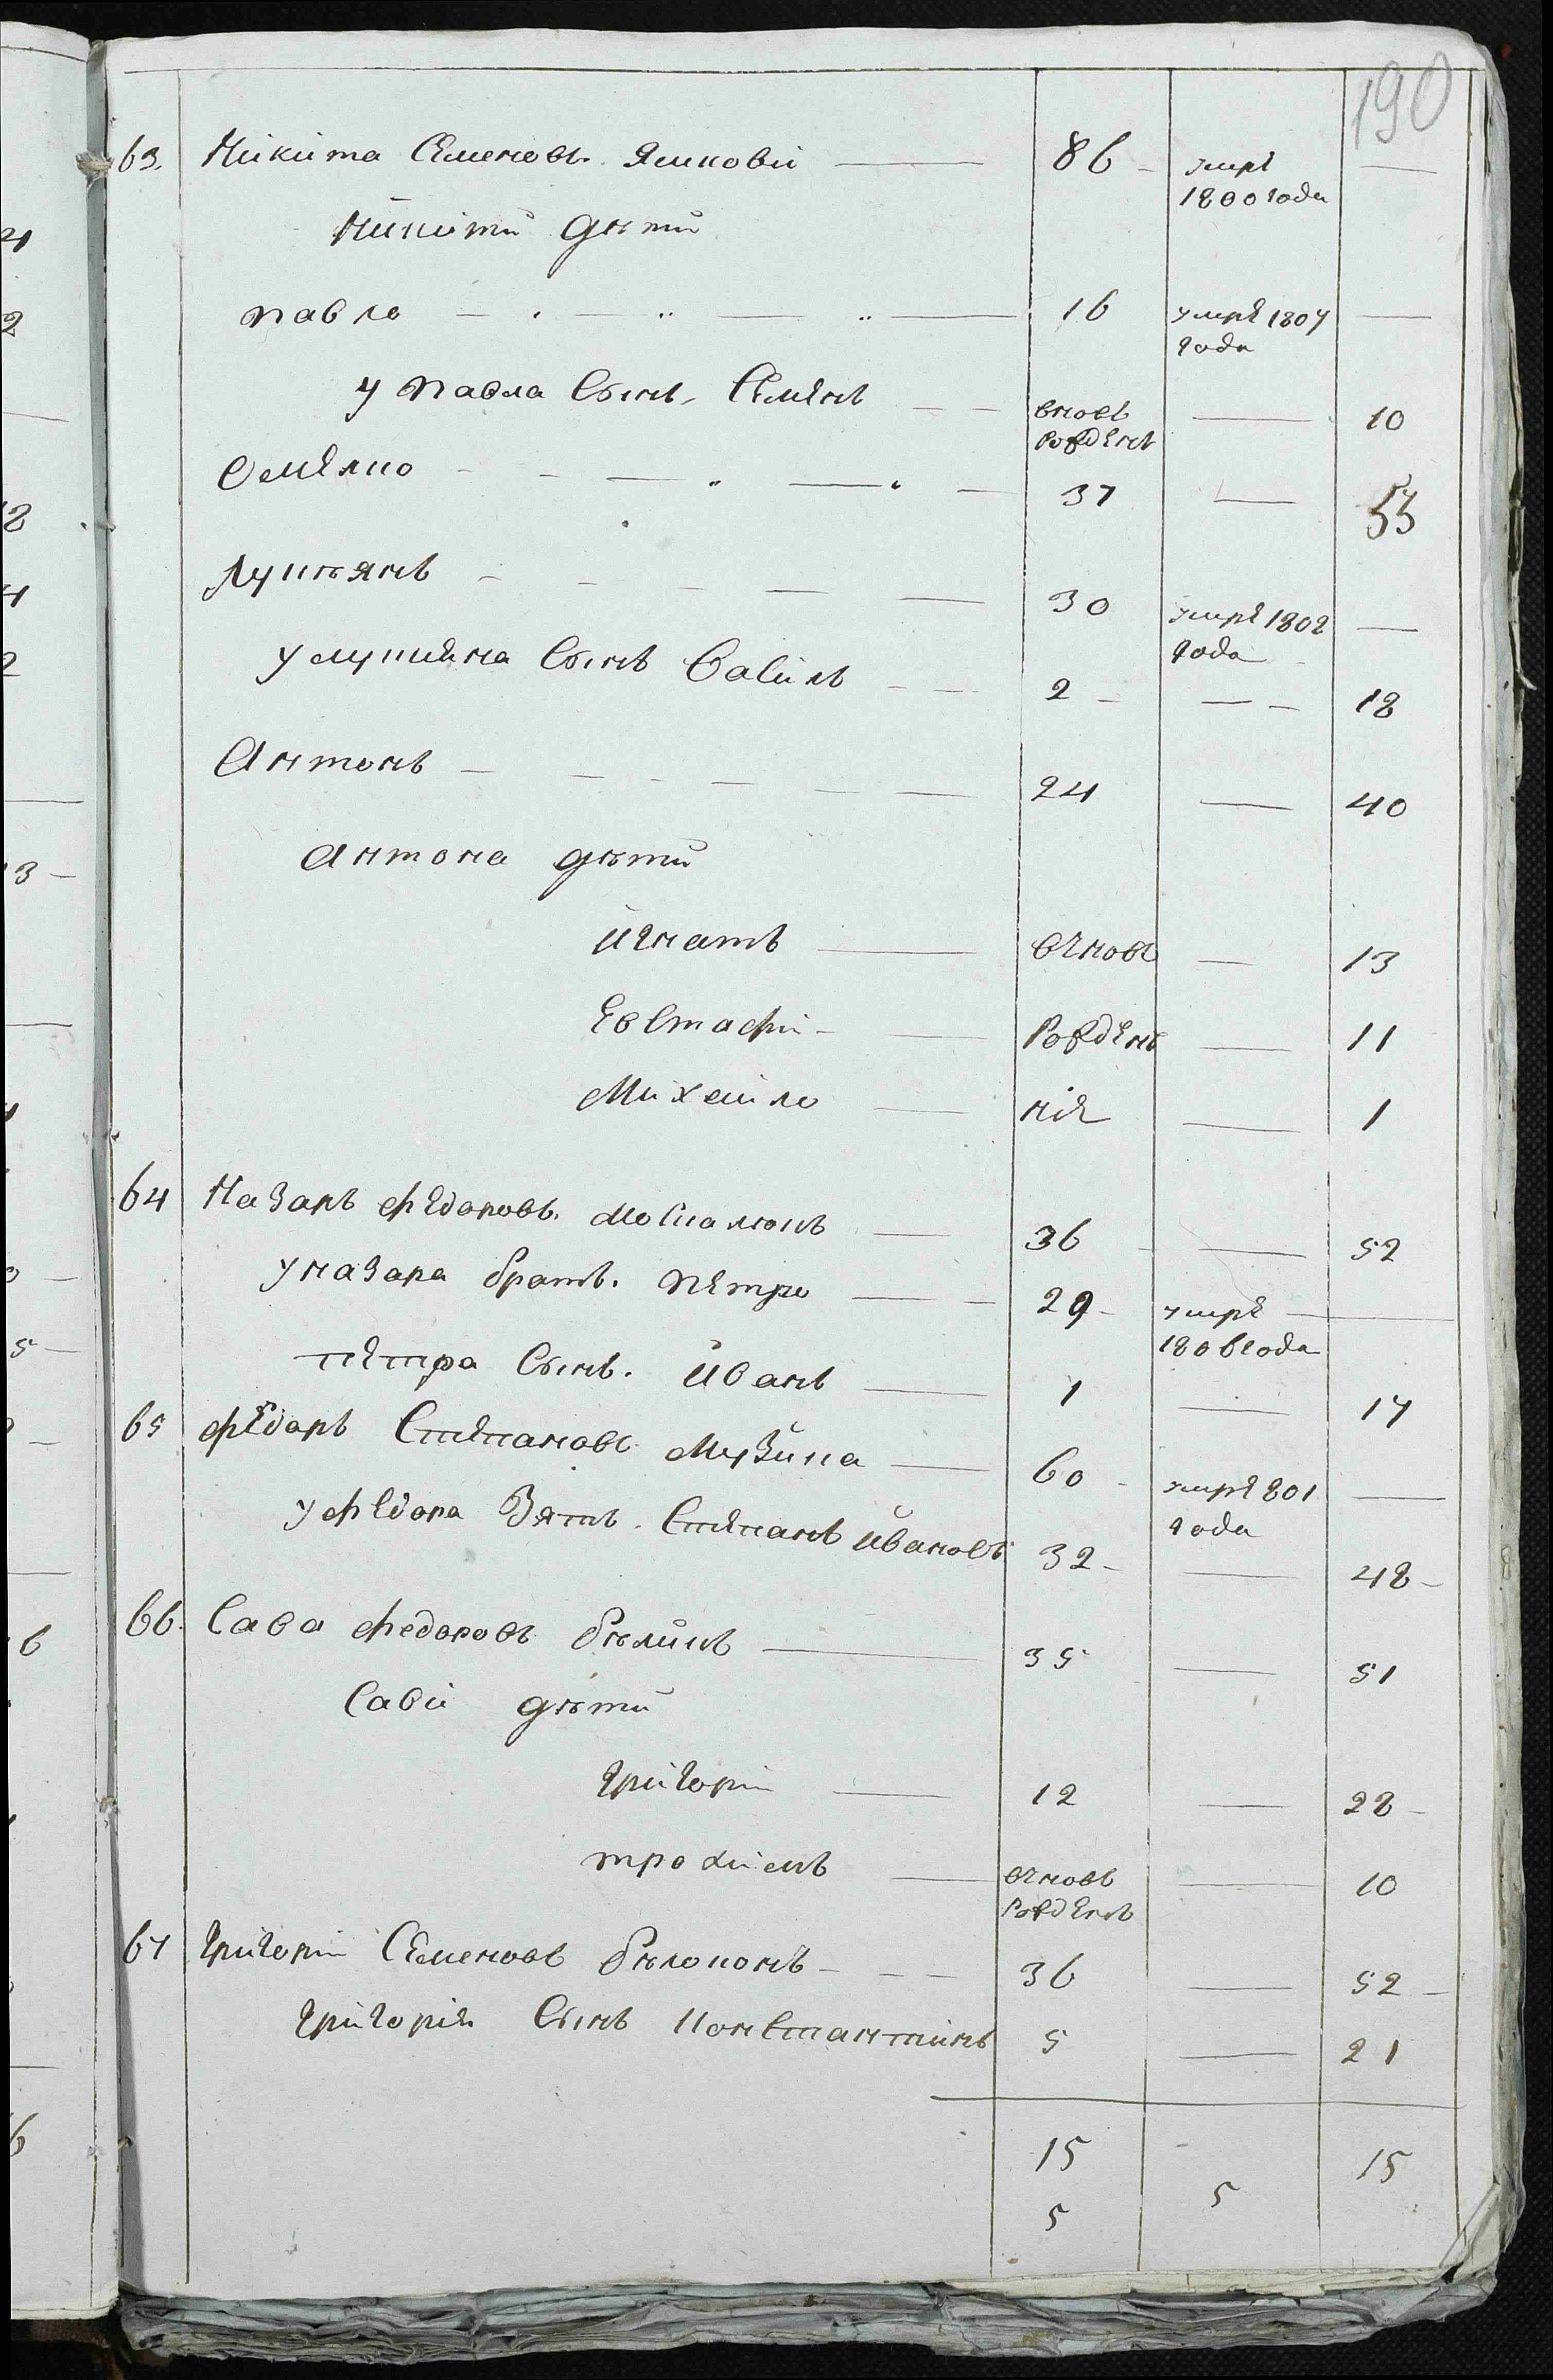 190
63. Никита Семеновъ Яцковъ 86 умре 1800 года
Никиты дѣти
павло 16 умре 1807 года
у павла Сынъ Семенъ вновъ рожденъ 10
Семенко 37 53
Лукянъ 30 умре 1802 года
у лукяна Сынъ Савилъ 2 18
Антонъ 24 40
Антона дѣти
игнатъ вновь 13
Евстафи рожден 11
Михаило ния 1
64 Назаръ федоровъ 36 52
у назара братъ. петро 29 умре 1806 года
петра Сынъ. иванъ 1 17
65 федоръ Степановъ Музика 60 умре 801 года
у федора Зять. Степанъ ивановъ 32 48
66. Сава федоровъ бѣликъ 35 51
Савы дѣти
григорий 12 28
трохимъ вновь рожденъ 10
67 григорий Семеновъ бѣлоконъ 36 52
григория Сынъ Константинъ 5 21
15 15
5 5